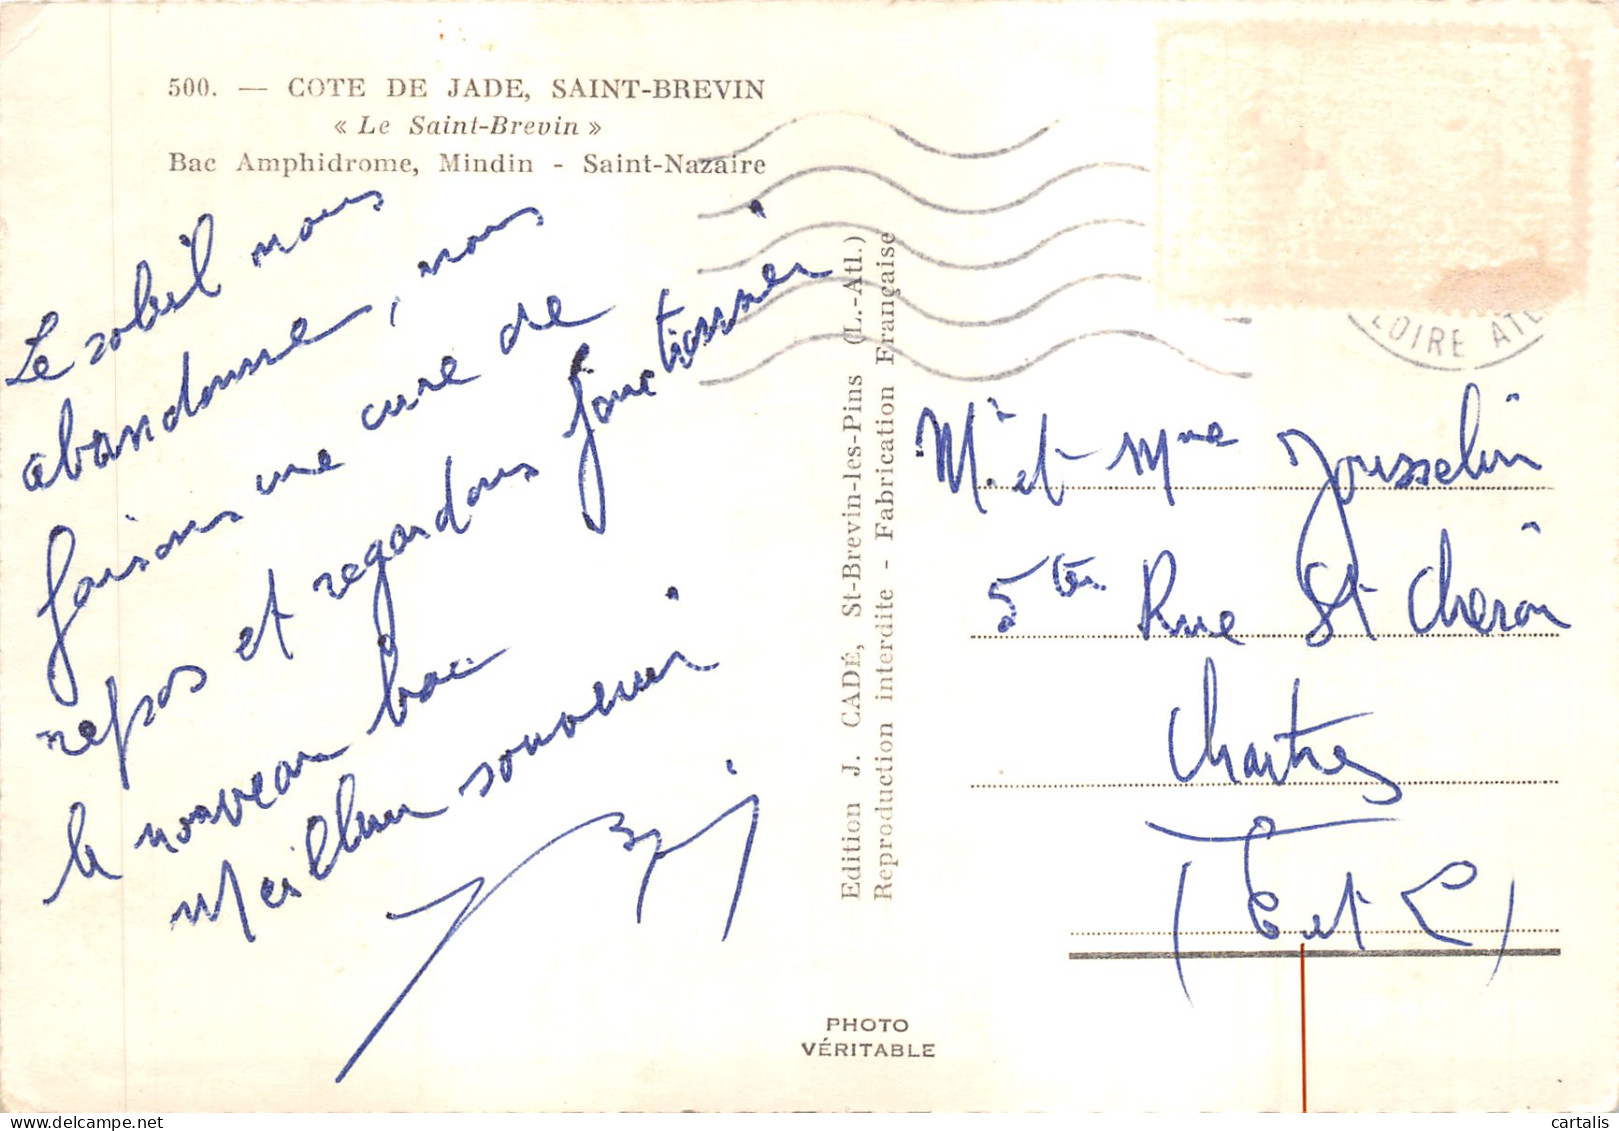 500. — COTE DE JADE, SAINT-BREVIN
« Le Saint-Brevin »
Bac Amphidrome, Mindin - Saint-Nazaire
Le soleil nous
abandonne, nous
faisons une cure de
repos et regardons fonctionner
le nouveau bac
Meilleur souvenir
Edition J. CADÉ, St-Brevin-les-Pins (L.-Atl.)
Reproduction interdite - Fabrication Française
LOIRE ATL
Mr et Mme Jousselin
5ter Rue St Chéron
Chartres
(E et L)
PHOTO
VÉRITABLE
cartalis